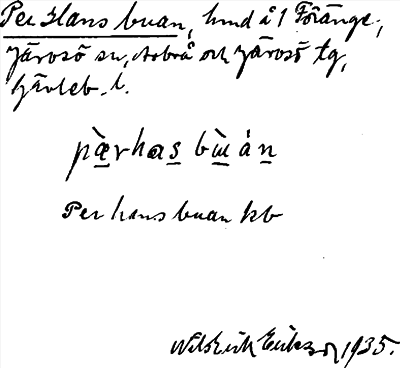 Per Hans buan, hmd å 1 Föränge,
Järvsö sn, Arbrå och Järvsö tg,
Gävleb. l.
pæ̀rhas bùɯán
Per hans buan kb
Nils Erik Eriksson 1935.